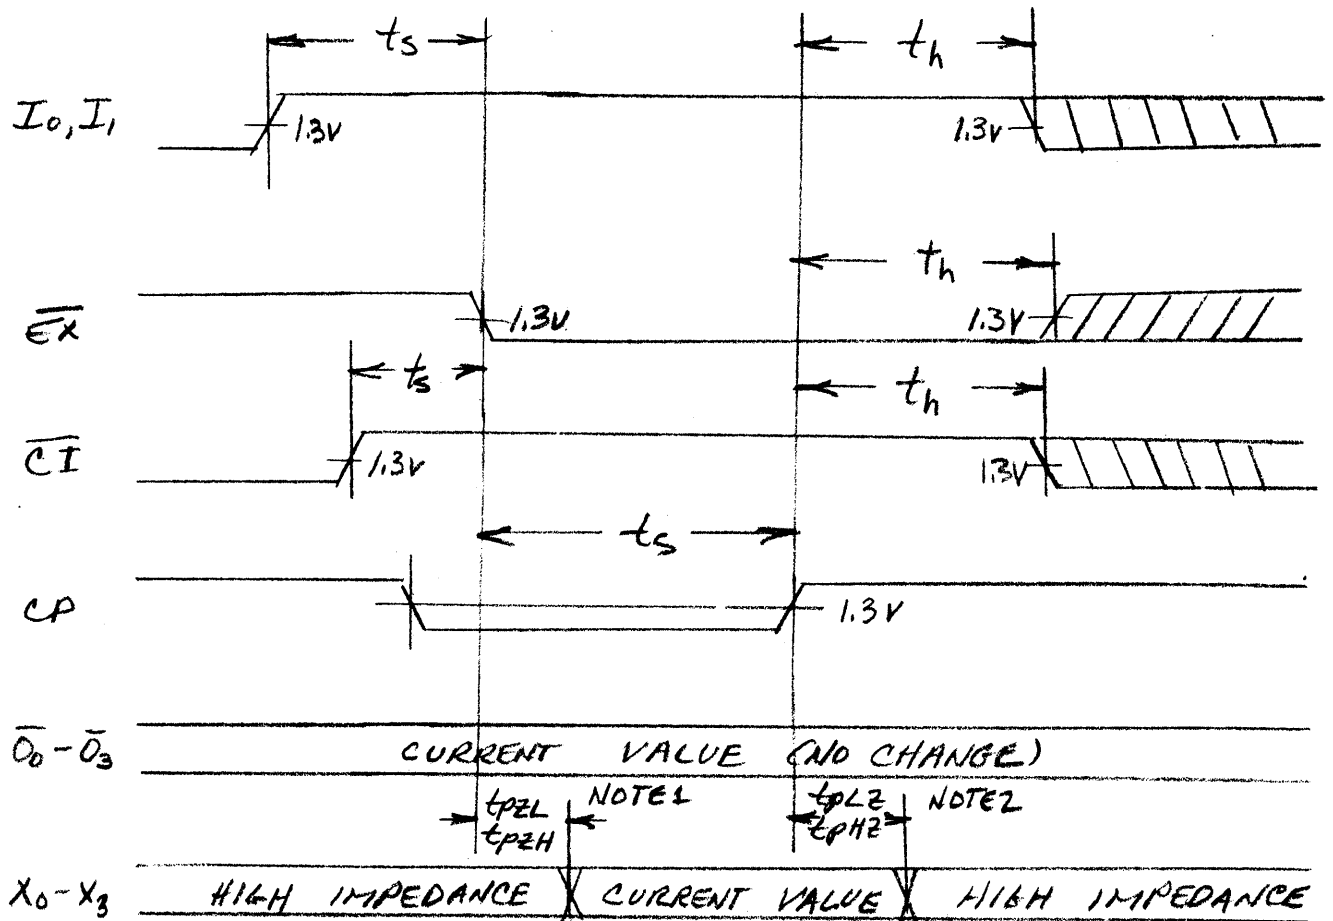 ts
th
I0, I1
1.3V
1.3V
th
EX
1.3V
1.3V
ts
th
CI
1.3V
1.3V
ts
CP
1.3V
O0 - O3
CURRENT VALUE (NO CHANGE)
tPZL
tPZH
NOTE1
tPLZ
tPHZ
NOTE2
X0-X3
HIGH IMPEDANCE
CURRENT VALUE
HIGH IMPEDANCE